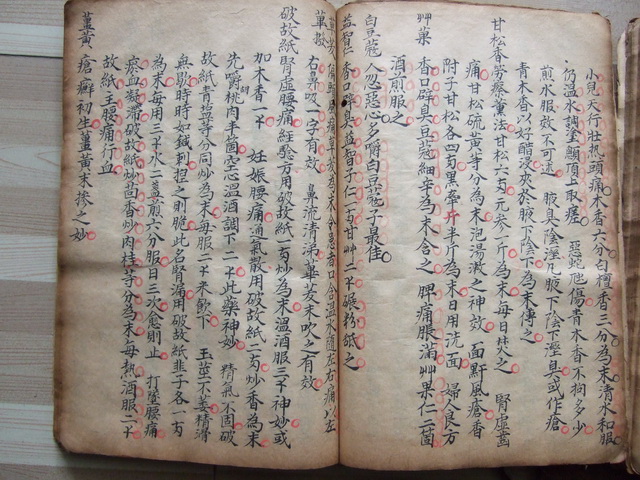 小兒天行壯熱頭痛木香六分白檀香三分為末清水和服
仍溫水調塗顖頂上取瘥 惡蛇虺傷青木香不拘多少
煎水服效不可述 腋臭陰溼凡腋下陰下溼臭或作瘡
青木香以好醋浸夾於腋下陰下為末傅之
甘松香勞瘵薰法甘松六兩元參一斤為末每日焚之 腎虛齒
痛甘松硫黃等分為末泡湯漱之神效 面䵟風瘡香
附子甘松各四兩黑牽牛半斤為末日用洗面 婦人良方
艸菓 香口辟臭豆蔻細辛為末含之 脾痛脹滿艸果仁二箇
酒煎服之
白豆蔻 人忽惡心多嚼白豆蔻子最佳
益智仁 香口辟臭益智子仁一兩甘艸二千碾粉舐之
蓽撥 偏頭痛蓽茇為末令患者口含溫水隨左右痛以左
右鼻吸一字有效 鼻流清涕蓽茇末吹之有效
破故紙 腎虛腰痛經驗方用破故紙一兩炒為末溫酒服三千神妙或
加木香一千 妊娠腰痛通氣散用破故紙二兩炒香為末
先嚼胡桃肉半箇空心溫酒調下二千此藥神妙 精氣不固破
故紙青塩等分同炒為末每服二千米飲下 玉莖不萎精滑
無歇時時如鍼刺捏之則脆此名腎漏用破故紙韭子各一兩
為末每用三千水二盞煎六分服日三次愈則止 打墜腰痛
瘀血凝滯破故紙炒茴香炒肉桂等分為末每熱酒服二千
故紙主腰痛行血
薑黃 瘡癬初生薑黃末摻之妙